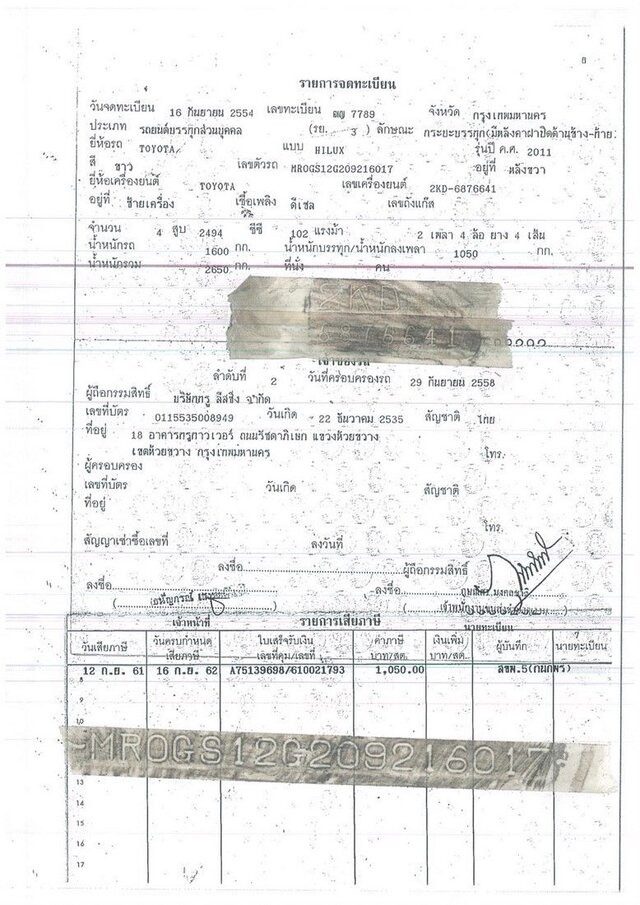 8
รายการจดทะเบียน
วันจดทะเบียน 16 กันยายน 2554 เลขทะเบียน ฒญ 7789 จังหวัด กรุงเทพมหานคร
ประเภท รถยนต์บรรทุกส่วนบุคคล (รย. 3 ) ลักษณะ กระยะบรรทุก(มีหลังคาฝาปิดด้านข้าง-ท้าย
ยี่ห้อรถ TOYOTA แบบ HILUX รุ่นปี ค.ศ. 2011
สี ขาว เลขตัวรถ MROGS12G209216017 อยู่ที่ หลังขวา
ยี่ห้อเครื่องยนต์ TOYOTA เลขเครื่องยนต์ 2KD-6876641
อยู่ที่ ซ้ายเครื่อง เชื้อเพลิง ดีเซล เลขถังแก๊ส
จำนวน 4 สูบ 2494 ซีซี 102 แรงม้า 2 เพลา 4 ล้อ ยาง 4 เส้น
น้ำหนักรถ 1600 กก. น้ำหนักบรรทุก/น้ำหนักลงเพลา 1050 กก.
น้ำหนักรวม 2650 กก. ที่นั่ง คน
2KD
6876641
เจ้าของรถ
ลำดับที่ 2 วันที่ครอบครองรถ 29 กันยายน 2558
ผู้ถือกรรมสิทธิ์ บริษัทกรุ ลีสซิ่ง จำกัด
เลขที่บัตร 0115535008949 วันเกิด 22 ธันวาคม 2535 สัญชาติ ไทย
ที่อยู่ 18 อาคารกรูทาวเวอร์ ถนนรัชดาภิเษก แขวงห้วยขวาง
เขตห้วยขวาง กรุงเทพมหานคร โทร.
ผู้ครอบครอง
เลขที่บัตร วันเกิด สัญชาติ
ที่อยู่
โทร.
สัญญาเช่าซื้อเลขที่ ลงวันที่
ลงชื่อ ผู้ถือกรรมสิทธิ์
ลงชื่อ ลงชื่อ
เจ้าหน้าที่ รายการเสียภาษี นายทะเบียน
วันเสียภาษี วันครบกำหนดเสียภาษี ใบเสร็จรับเงิน เลขที่คุม/เลขที่ ค่าภาษี บาท/สต. เงินเพิ่ม บาท/สต. ผู้บันทึก นายทะเบียน
12 ก.ย. 61 16 ก.ย. 62 A75139698/610021793 1,050.00 ลขพ.5(กนกพร)
8
9
10
MROGS12G209216017
13
14
15
16
17